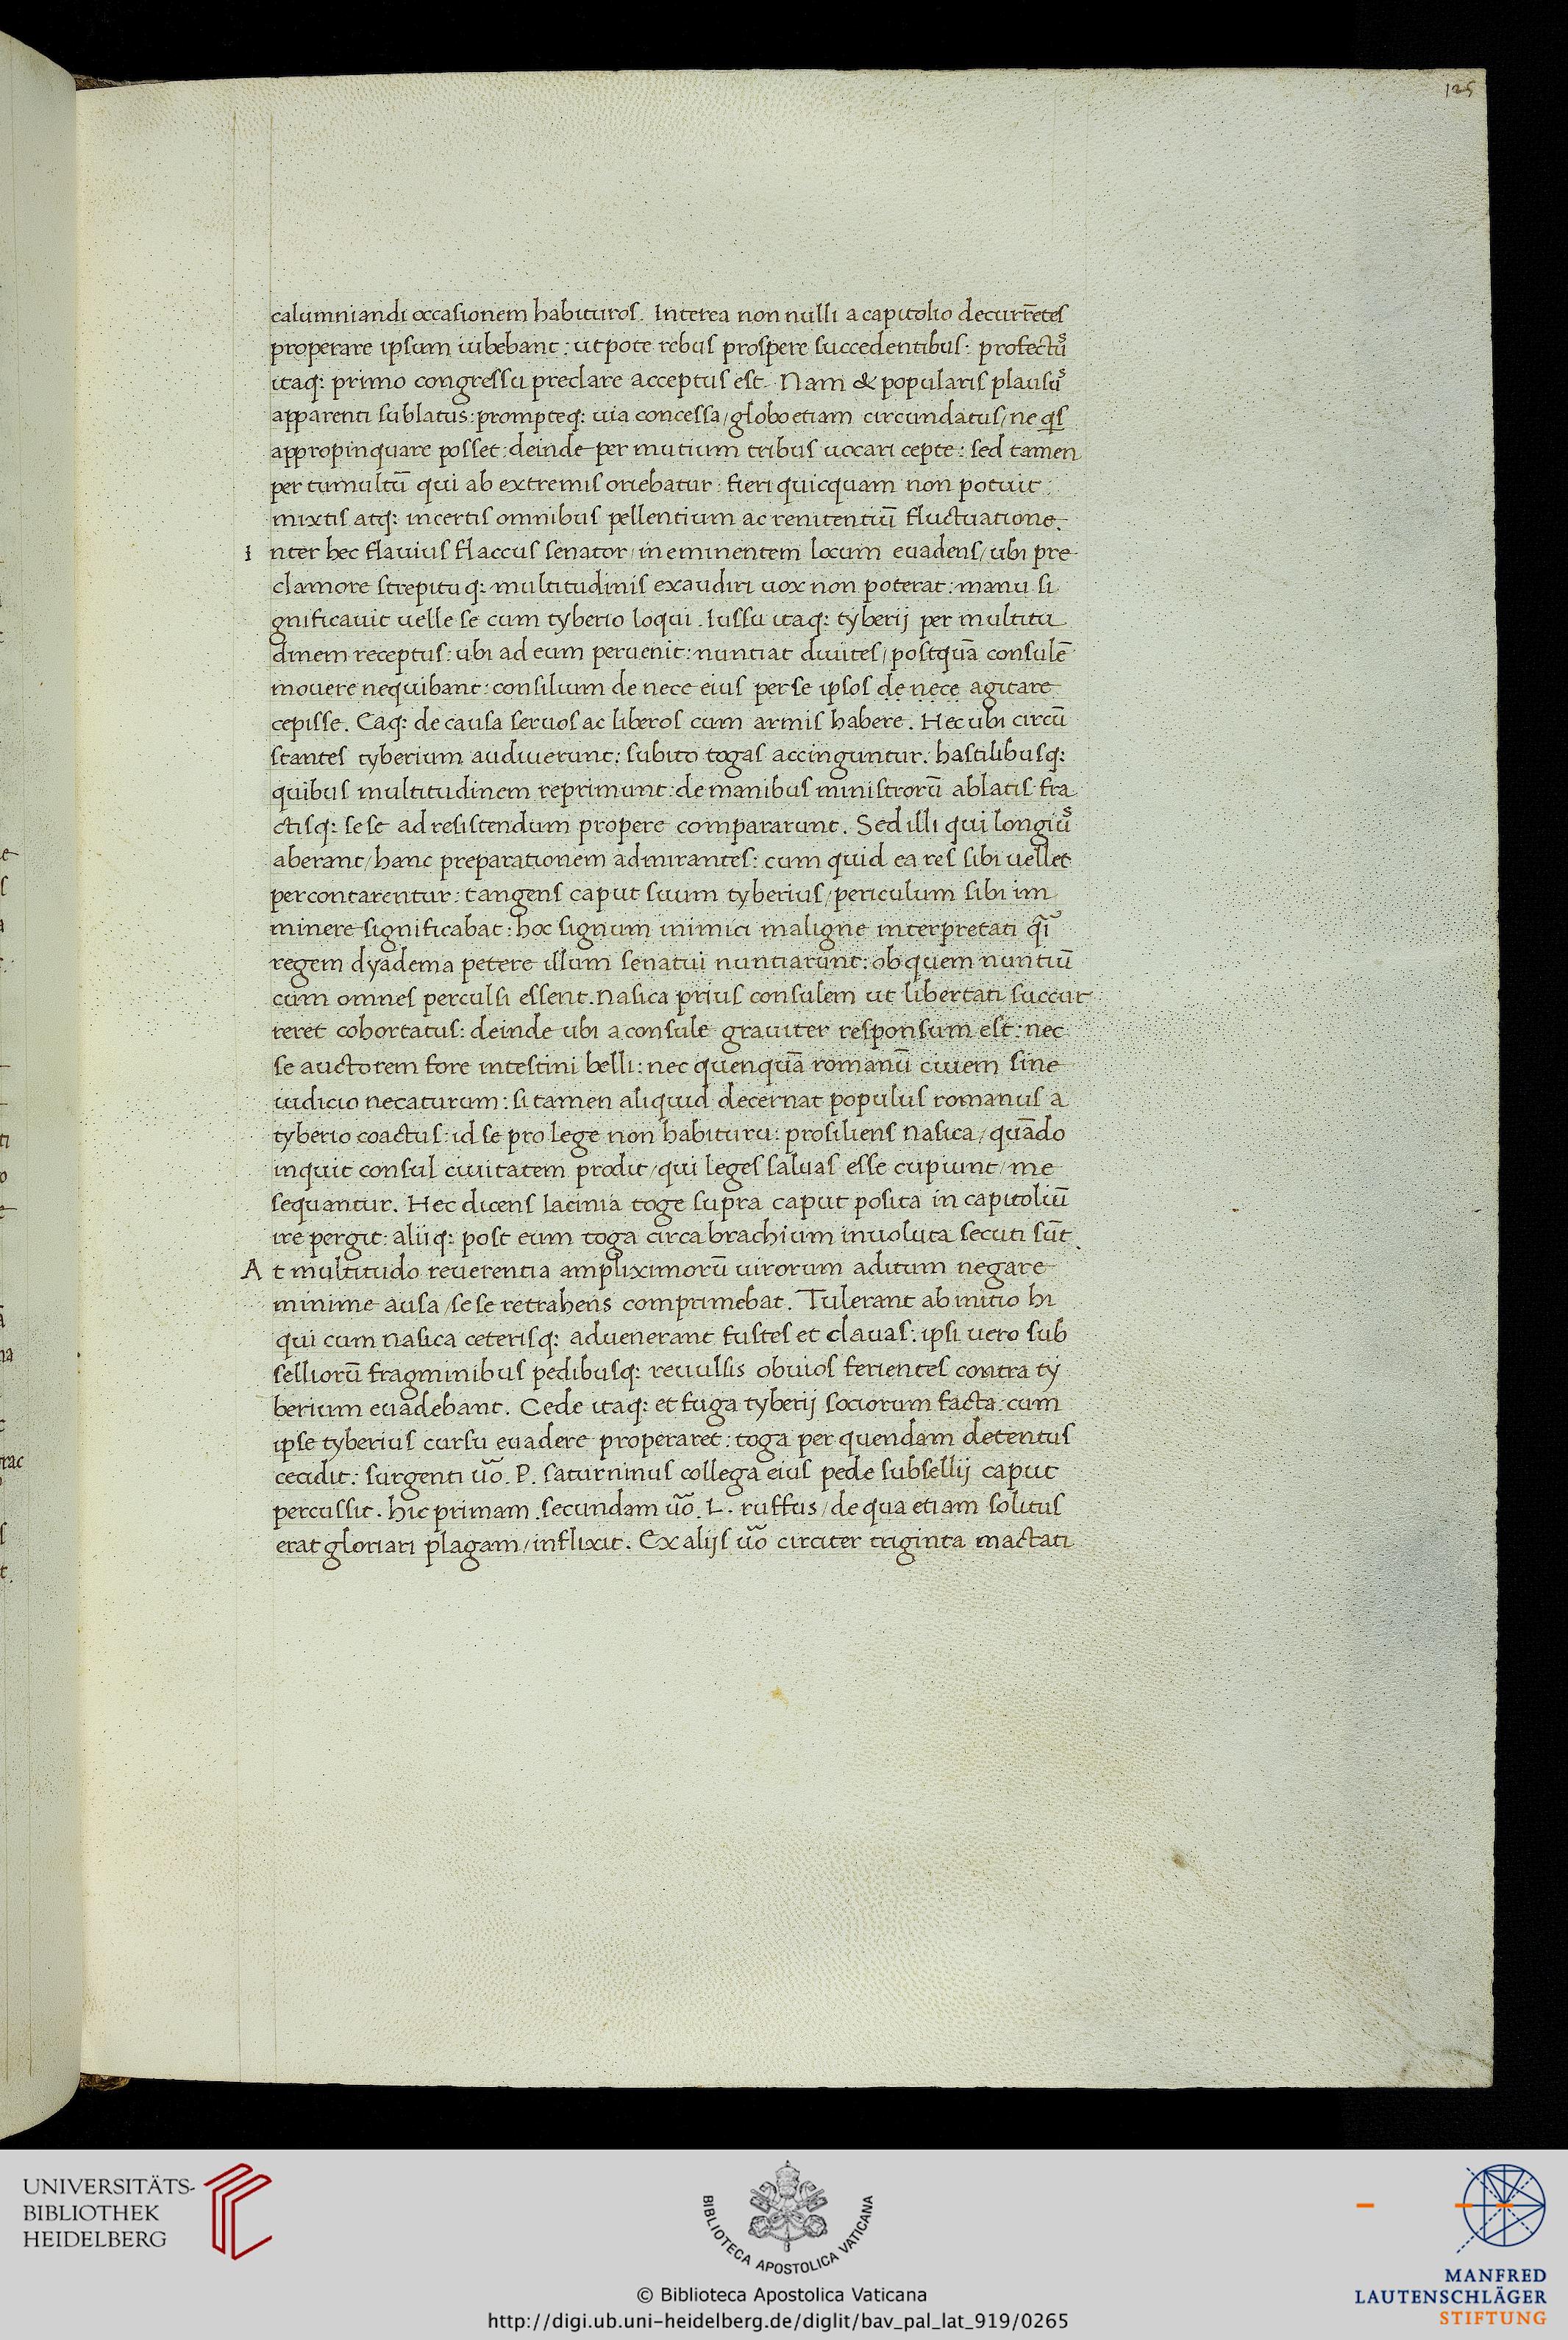 125
calumniandi occasionem habituros. Interea non nulli a capitolio decurrẽtes
properare ipsum iubebant: utpote rebus prospere succedentibus: profectuꝰ
itaq: primo congressu preclare acceptus est. Nam & popularis plausuꝰ
apparenti sublatus: prompteq: uia concessa/ globo etiam circundatus/ ne qs
appropinquare posset: deinde per mutium tribus uocari cepte: sed tamen
per tumultū qui ab extremis oriebatur: fieri quicquam non potuit:
mixtis atq: incertis omnibus pellentium ac renitentiū fluctuatione.
Inter hec flavius flaccus senator/ in eminentem locum evadens/ ubi pre
clamore strepitu q: multitudinis exaudiri uox non poterat: manu si
gnificavit uelle se cum tyberio loqui. Iussu itaq: tyberij per multitu
dinem receptus: ubi ad eum peruenit: nuntiat diuites/ postquā consulē
mouere nequibant: consilium de nece eius per se ipsos de nece agitare
cepisse. Eaq: de causa servos ac liberos cum armis habere. Hec ubi circū
stantes tyberium audiverunt: subito togas accinguntur: hastilibusq:
quibus multitudinem reprimunt: de manibus ministrorū ablatis fra
ctisq: sese ad resistendum propere compararunt. Sed illi qui longiuꝰ
aberant/ hanc preparationem admirantes: cum quid ea res sibi uellet
percontarentur: tangens caput suum tyberius/ periculum sibi im
minere significabat: hoc signum inimici maligne interpretati q̄i
regem dyadema petere illum senatui nuntiarunt: ob quem nuntiū
cum omnes perculsi essent. Nasica prius consulem ut libertati succur
reret cohortatus: deinde ubi a consule graviter responsum est: nec
se auctorem fore intestini belli: nec quenquā romanū civem sine
iudicio necaturum: si tamen aliquid decernat populus romanus a
tyberio coactus: id se pro lege non habituru: prosiliens Nasica/ quādo
inquit consul civitatem prodit/ qui leges salvas esse cupiunt/ me
sequantur. Hec dicens lacinia toge supra caput posita in capitoliū
ire pergit: aliiq: post eum toga circa brachium inuoluta secuti sūt.
At multitudo reuerentia ampliximorū uirorum aditum negare
minime ausa/ sese retrahens comprimebat. Tulerant ab initio hi
qui cum nasica ceterisq: advenerant fustes et clavas: ipsi vero sub
selliorū fragminibus pedibusq: revulsis obvios ferientes contra ty
berium evadebant. Cede itaq: et fuga tyberij sociorum facta: cum
ipse tyberius cursu evadere properaret: toga per quendam detentus
cecidit: surgenti ũo. P. saturninus collega eius pede subsellij caput
percussit. hic primam. secundam ũo. L. ruffus/ de qua etiam solitus
erat gloriari plagam/ inflixit. Ex alijs ũo circiter triginta mactati
UNIVERSITÄTS-
BIBLIOTHEK
HEIDELBERG
BIBLIOTECA APOSTOLICA VATICANA
© Biblioteca Apostolica Vaticana
http://digi.ub.uni-heidelberg.de/diglit/bav_pal_lat_919/0265
MANFRED
LAUTENSCHLÄGER
STIFTUNG